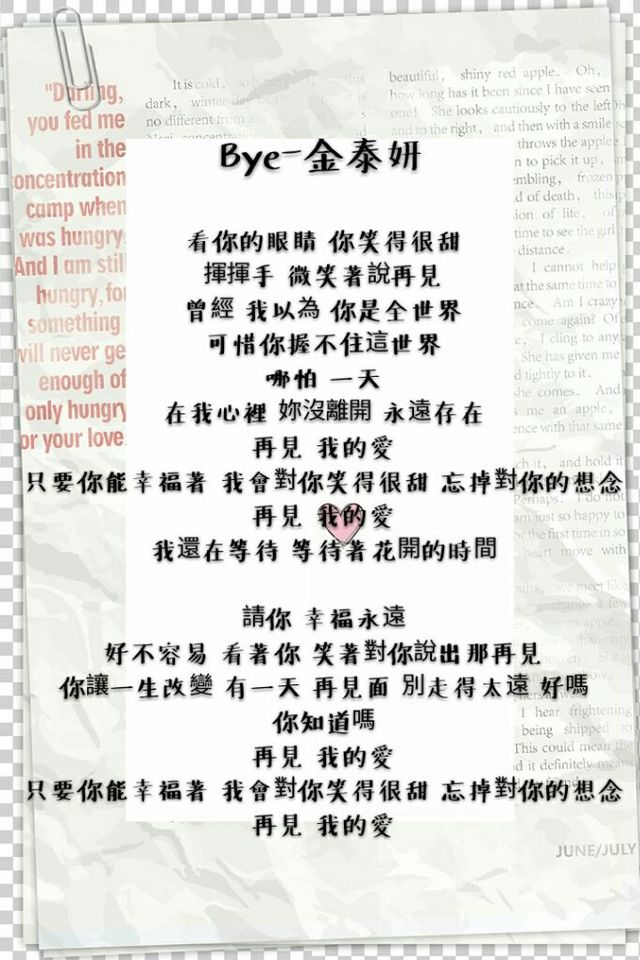 "Darling,
you fed me
in the
concentration
camp when
was hungry
And I am still
hungry, for
something
will never ge
enough of
only hungry
or your love
It is cold,
dark, winter day
no different from
beautiful, shiny red apple. Oh,
how long has it been since I have seen
one! She looks cautiously to the left
and to the right, and then with a smile
throws the apple
to pick it up,
frozen
d of death,
of life,
time to see the girl
distance.
I cannot help
at the same time to
Am I crazy
come again? Of
I cling to any
She has given me
tightly to it.
she comes. And
me an apple,
with that same
and hold it
I do not
am just so happy to
the first time in so
heart move with
we meet like
exchange a few
I hear frightening
being shipped to
This could mean the
d it definitely means
Bye-金泰妍
看你的眼睛 你笑得很甜
揮揮手 微笑著說再見
曾經 我以為 你是全世界
可惜你握不住這世界
哪怕 一天
在我心裡 妳沒離開 永遠存在
再見 我的愛
只要你能幸福著 我會對你笑得很甜 忘掉對你的想念
再見 我的愛
我還在等待 等待著花開的時間
請你 幸福永遠
好不容易 看著你 笑著對你說出那再見
你讓一生改變 有一天 再見面 別走得太遠 好嗎
你知道嗎
再見 我的愛
只要你能幸福著 我會對你笑得很甜 忘掉對你的想念
再見 我的愛
JUNE/JULY